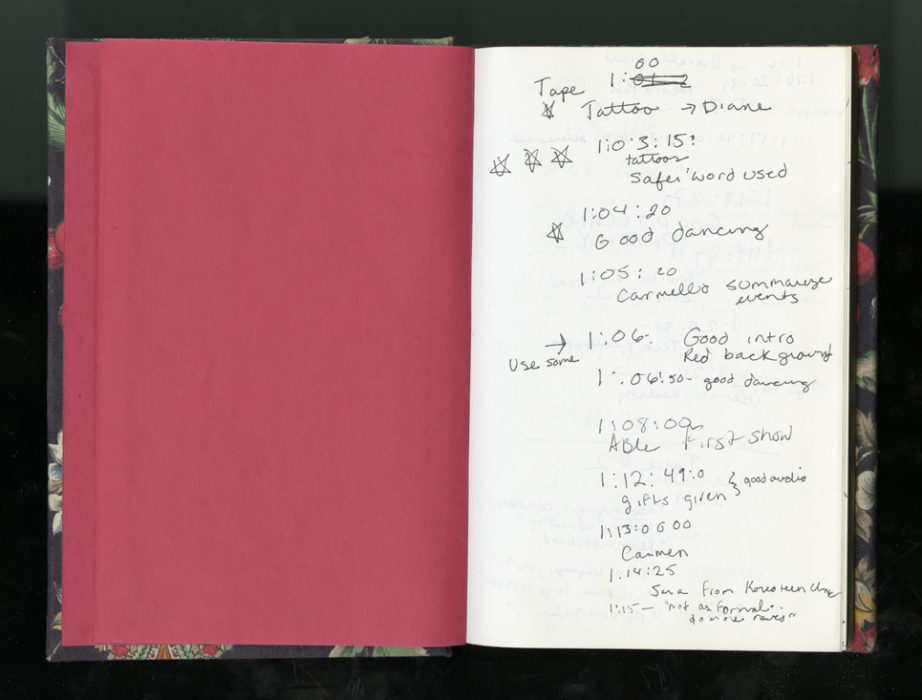 00
Tape 1:01:2
Tattoo → Diane
1:03:15:
tattoos
Safer word used
1:04:20
Good dancing
1:05:20
Carmello summarize
events
→ 1:06- Good intro
Use some Red background
1:06:50- good dancing
1:08:00
ABle First show
1:12:49:0 } good audio
gifts given
1:13:0000
Carmen
1:14:25
from Koreatown
1:15- "not as formal.
do more raves"